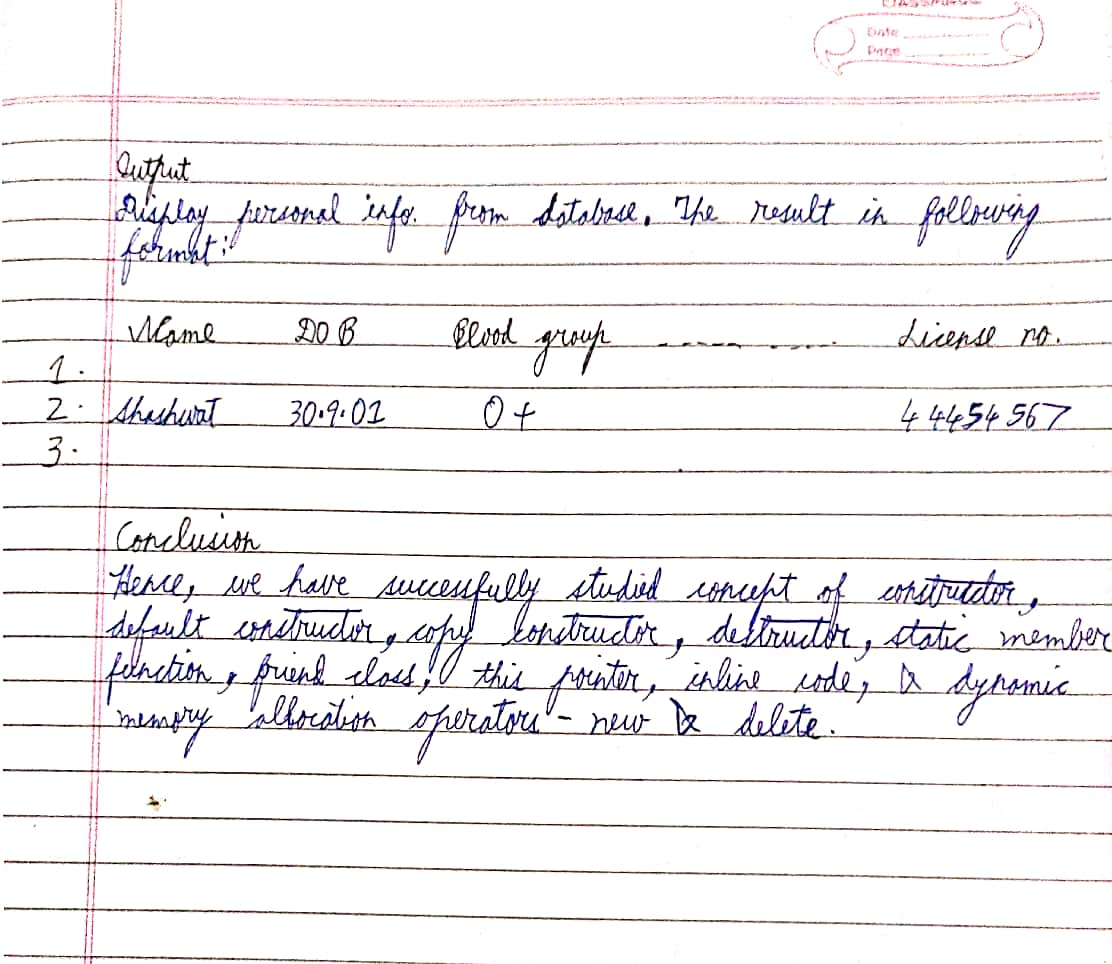 Date
Page
Output
Display personal info. from database. The result in following
format:
Name DOB Blood group ---- ---- License no.
1.
2. Shashwat 30.9.01 O+ 44454567
3.
Conclusion
Hence, we have successfully studied concept of constructor,
default constructor, copy constructor, destructor, static member
function, friend class, this pointer, inline code, & dynamic
memory allocation operators - new & delete.